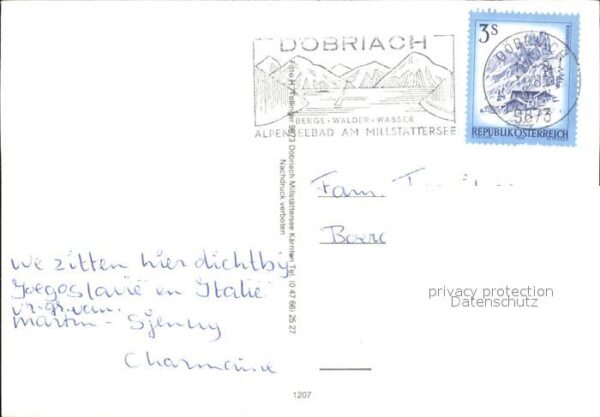 DÖBRIACH
BERGE · WÄLDER · WASSER
ALPENSEEBAD AM MILLSTÄTTERSEE
3S
DÖBRIACH
9873
REPUBLIK ÖSTERREICH
Döbriach Millstättersee Kärnten Tel. (0 47 66) 25 27
Nachdruck verboten
Fam.
we zitten hier dichtbij
Joegoslavië en Italië
vr. gr. van.
Martin - Sjenny
Charmaine
privacy protection
Datenschutz
1207